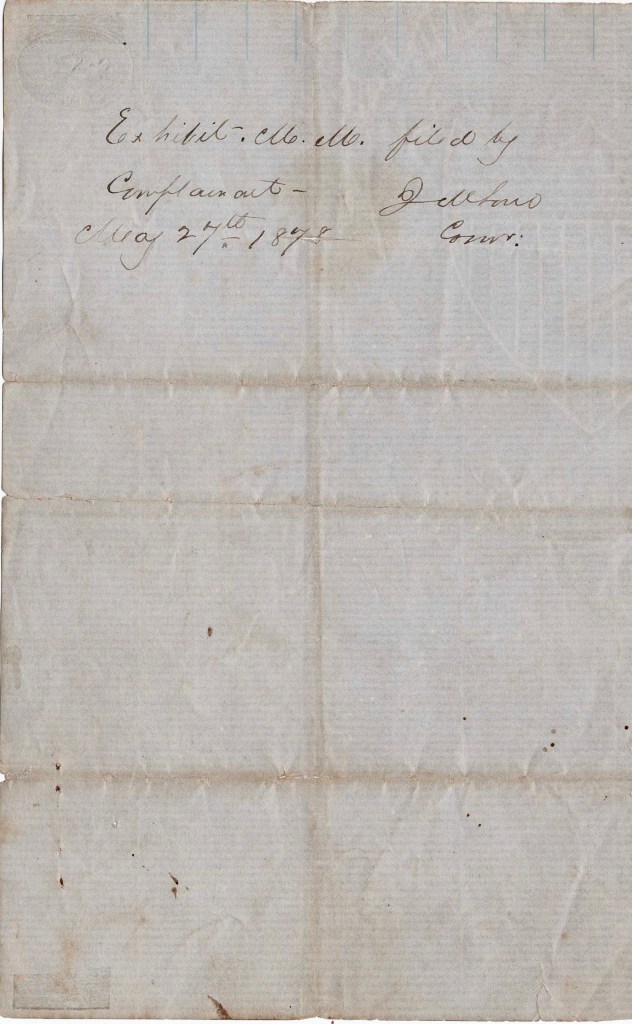 Exhibit. M. M. filed by
Complainant -
May 27th 1878 Comr: